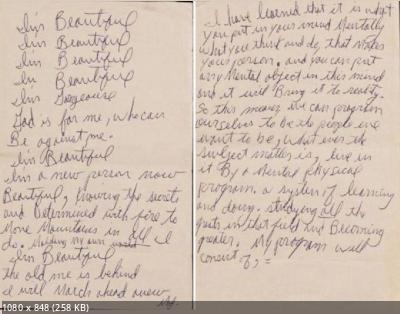 I'm Beautiful
I'm Beautiful
I'm Beautiful
I'm Beautiful
I'm Gorgeous
God is for me, who can
Be against me.
I'm Beautiful
I'm a new person now
Beautiful, knowing the secrets
and Determined with fire to
Move Mountains in all I
do. Molding my own world
I'm Beautiful
the old me is behind
I will March ahead anew
MJ.
I have learned that it is what
you put in your mind Mentally
what you think and do, that makes
your person. and you can put
any Mental object in this mind
and it will Bring it to reality.
So this means we can program
ourselves to be the people we
want to be, what ever the
subject matter is, live in
it By a Mental physical
program. a system of learning
and doing. studying all the
greats in that field and Becoming
greater. My program will
consist of, =
1080 x 848 (258 KB)